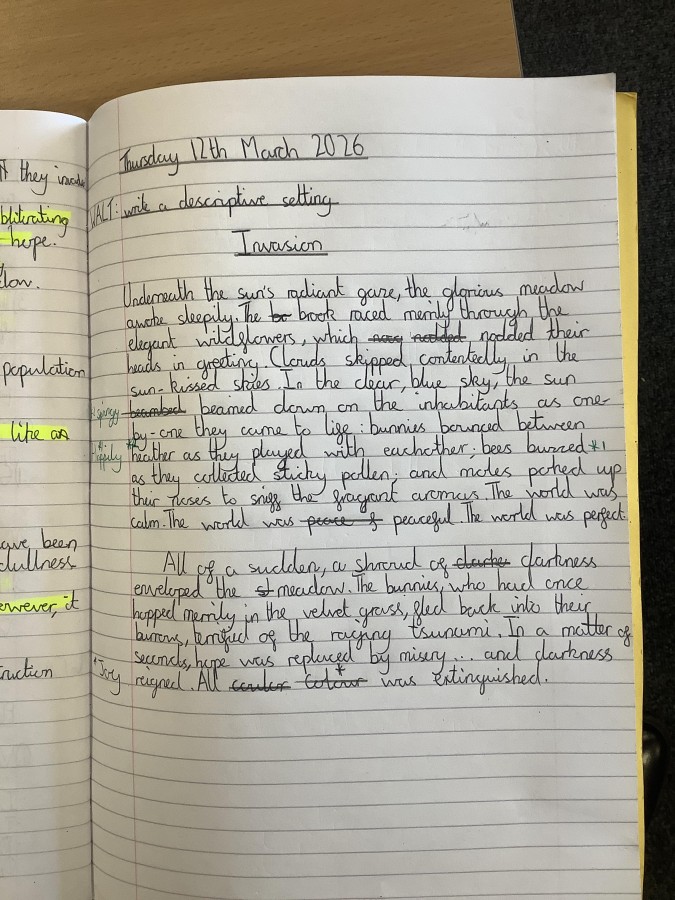 they
obliterating
hope.
population
like an
have been
dullness
however, it
Thursday 12th March 2026
WALT: write a descriptive setting
Invasion
Underneath the sun's radiant gaze, the glorious meadow
awoke sleepily. The brook raced merrily through the
elegant wildflowers, which nodded nodded their
heads in greeting. Clouds skipped contentedly in the
sun-kissed skies. In the clear, blue sky, the sun
beambed beamed down on the inhabitants as one-
by-one they came to life: bunnies bounced between
*heather as they played with eachother; bees buzzed *1
as they collected sticky pollen; and moles poked up
their noses to sniff the fragrant aromas. The world was
calm. The world was peace f peaceful. The world was perfect.
*springy
*1 happily
All of a sudden, a shroud of darke darkness
enveloped the st meadow. The bunnies, who had once
hopped merrily in the velvet grass, fled back into their
burrows, terrified of the raging tsunami. In a matter of
seconds, hope was replaced by misery... and darkness
reigned. All couler colour* was extinguished.
*Joy